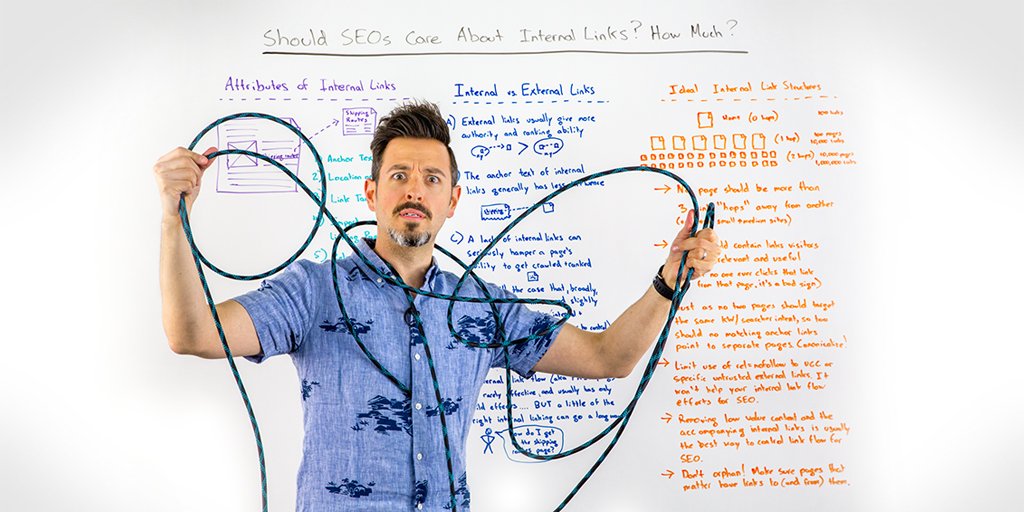 Should SEOs Care About Internal Links? How Much?
Attributes of Internal Links
Shipping
Routes
Anchor Tex
2) Location o
Link Ta
5)
Internal vs External Links
External links usually give more
authority and ranking ability
>
The anchor text of internal
links generally has less
C) A lack of internal links can
seriously hamper a page's
ability to get crawled + ranked
the case that, broadly,
slightly
to control
internal link flow
rarely effective, and usually has only
BUT a little of the
right internal linking can go a long
How do I get
to the shipping
routes page?
Ideal Internal Link Structures
Home (0 hops)
100 links
(1 hop)
100 pages
10,000 links
(2 hops)
10,000 pages
1,000,000 links
→ No page should be more than
3 "hops" away from another
small + medium sites)
→ contain links visitors
relevant and useful
no one ever clicks that link
from that page, it's a bad sign)
Just as no two pages should target
the same KW/searcher intent, so too
should no matching anchor links
point to separate pages. Canonicalize!
→ Limit use of rel=nofollow to UGC or
specific untrusted external links. It
won't help your internal link flow
efforts for SEO.
→ Removing low value content and the
accompanying internal links is usually
the best way to control link flow for
SEO.
→ Don't orphan! Make sure pages that
matter have links to (and from) them.